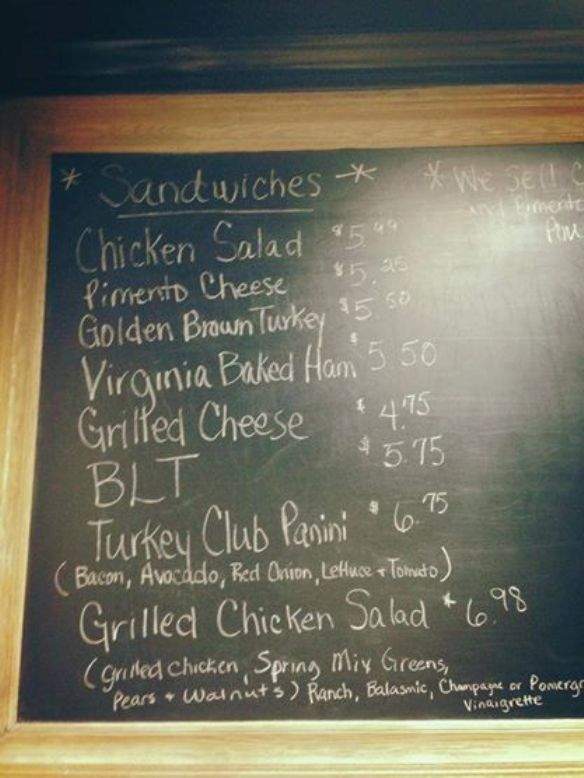 * Sandwiches * * We Sell
and Pimento
Chicken Salad $5.49
Pimento Cheese $5.25
Golden Brown Turkey $5.50
Virginia Baked Ham $5.50
Grilled Cheese $4.75
BLT $5.75
Turkey Club Panini $6.75
(Bacon, Avocado, Red Onion, Lettuce + Tomato)
Grilled Chicken Salad $6.98
(grilled chicken, Spring Mix Greens,
Pears + Walnuts) Ranch, Balasmic, Champagne or Pomegr
Vinaigrette